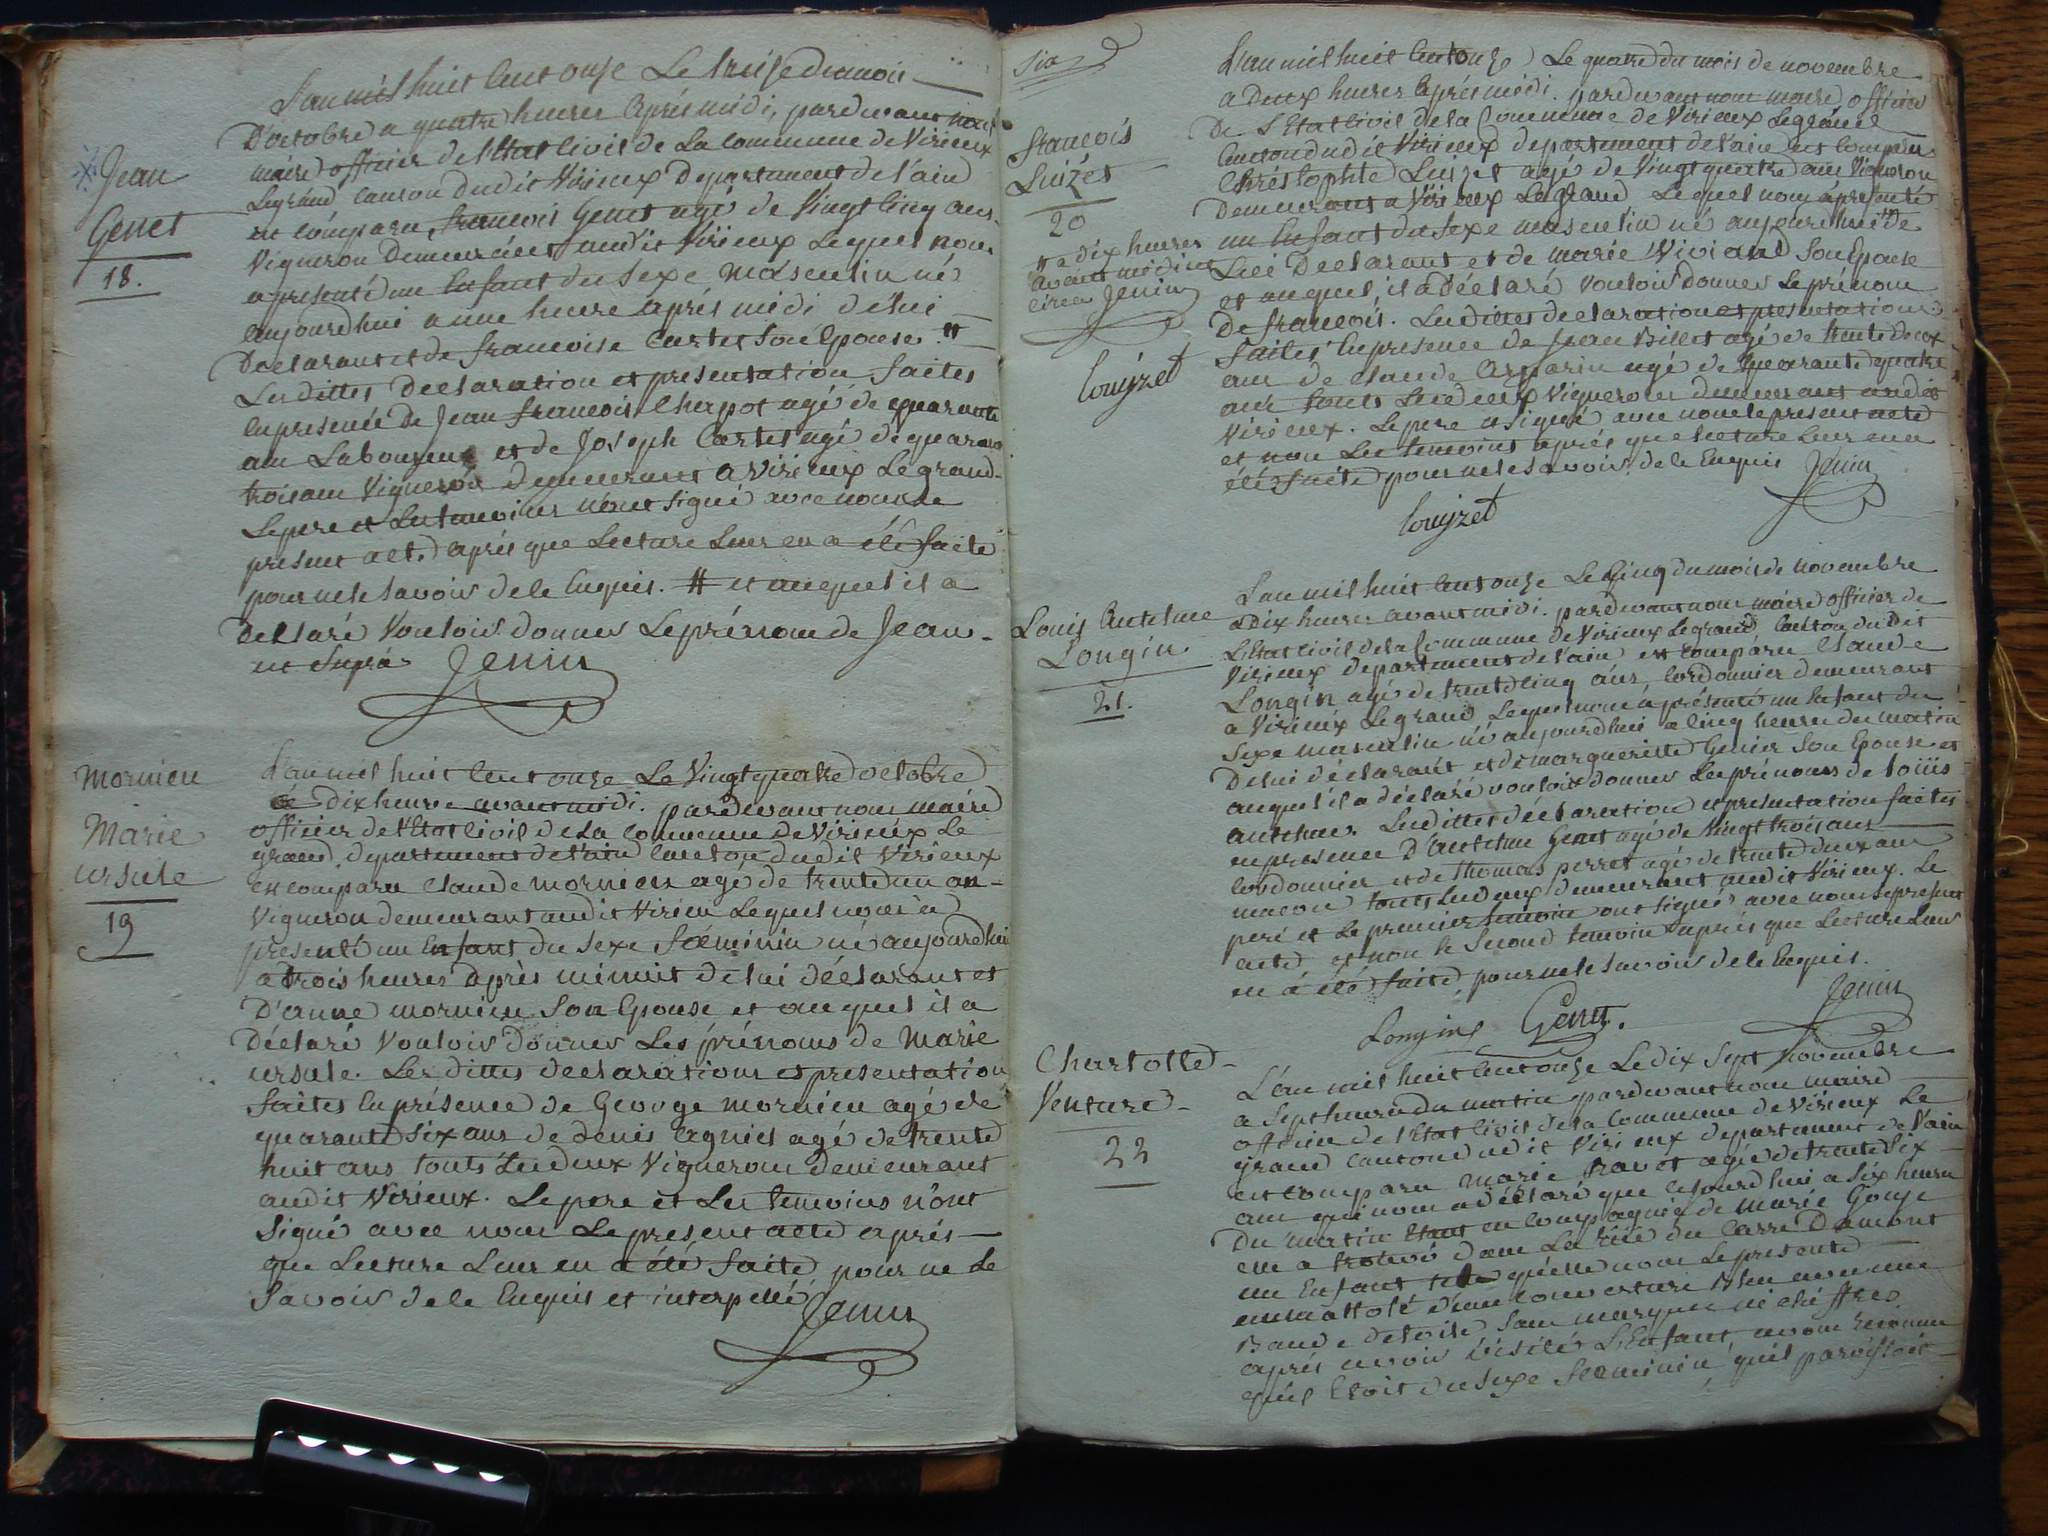 Jean
Genet
18.
L'an mil huit Cent onze Le treize du mois
D'octobre a quatre heures Après midi, pardevant nous
maire officier de l'Etat Civil de La Commune de Virieux
Legrand canton dudit Virieux Departement de l'ain
est comparu, francois Genet agé de Vingt Cinq ans
Vigneron Demeurant audit Virieux Lequel nous
a presenté un Enfant du Sexe Masculin né
aujourd'hui a une heure après midi de lui
Declarant et de francoise Cartet Son Epouse. #
Les dittes Declaration et presentation faites
En presence de Jean francois Cherpot agé de quarante
ans Laboureur et de Joseph Cartet agé de quarante
trois ans Vigneron Demeurant a Virieux Le grand.
Le pere et Les temoins n'ont Signé avec nous le
present acte après que Lecture Leur en a été faite
pour ne le Savoir de le Enquis. # et auquel il a
Declaré Vouloir donner Le prénom de Jean
ut Supra Jenin
Mornieu
Marie
ursule
19
L'an mil huit Cent onze Le Vingt quatre octobre
à Dix heures avant midi. pardevant nous maire
officier de l'Etat Civil de La Commune de Virieux Le
grand, departement de l'ain Canton dudit Virieux
est comparu Claude mornieu agé de trente un an
Vigneron demeurant audit Virieu Lequel nous a
presenté un Enfant du Sexe Fœminin né aujourd'hui
a trois heures après minuit de lui déclarant et
D'anne mornieu Son Epouse et auquel il a
Déclaré Vouloir donner Les prénoms de Marie
ursule. Les dittes declarations et presentation
faites En présence de George mornieu agé de
quarante six ans de denis agniel agé de trente
huit ans touts Les deux Vignerons demeurant
audit Virieux. Le pere et Les temoins n'ont
Signé avec nous Le present acte après
que Lecture Leur en a été faite pour ne le
Savoir de le Enquis et interpellé Jenin
Six
francois
Luizet
20
# a dix heures
avant midi
Jenin
Louyzet
L'an mil huit Cent onze Le quatre du mois de novembre
a deux heures après midi. pardevant nous maire officier
De L'Etat Civil de la Commune de Virieux Legrand
Canton dudit Virieux departement de l'ain est comparu
Christophe Luizet agé de Vingt quatre ans Vigneron
Demeurant a Virieux Le grand Lequel nous a presenté
un Enfant du Sexe masculin né aujourd'hui # de
Lui Declarant et de marie Viviand Son Epouse
et auquel il a déclaré Vouloir donner Le prénom
De francois. Les dittes declaration et presentation
faites En presence de Jean Billet agé de trente deux
ans de Claude Arparin agé de quarante quatre
ans touts Les deux Vignerons demeurant audit
Virieux. Le pere a Signé avec nous le present acte
et non Les temoins après que lecture Leur en a
été faite pour ne le Savoir de le Enquis Jenin
Louyzet
Louis Antelme
Longin
21.
L'an mil huit Cent onze Le Cinq du mois de novembre
a Dix heures avant midi. pardevant nous maire officier de
L'Etat Civil de la Commune de Virieux Le grand Canton dudit
Virieux departement de l'ain est comparu Claude
Longin agé de trente Cinq ans, Cordonnier demeurant
a Virieux Le grand Lequel nous a présenté un Enfant du
Sexe masculin né aujourd'hui a Cinq heures du matin
De lui déclarant et de marguerite Genier Son Epouse et
auquel il a déclaré vouloir donner Les prénoms de loüis
antelme. Les dittes déclaration et presentation faites
en presence d'Antelme Genet agé de Vingt trois ans
Cordonnier et de thomas perret agé de trente deux ans
macon touts Les deux demeurant audit Virieux. Le
peré et Le premier temoin ont Signé avec nous le present
acte et non le Second temoin après que Lecture Leur
en a été faite, pour ne le Savoir de le Enquis.
Longin Genet. Jenin
Charlotte
Venture
22
L'an mil huit Cent onze Le dix Sept Novembre
a Sept heures du matin pardevant nous maire
officier de l'Etat Civil de la Commune de Virieux Le
grand canton dudit Virieux departement de l'ain
est comparu marie travet agée de trente Six
ans qui nous a déclaré que cejourd'hui a Six heures
Du matin Etant en Compagnie de marie Gouje
elle a trouvé dans La rüe du Carre Damont
un Enfant tel qu'elle nous Le presente
emmaltoté d'une couverture Bleu avec une
Bande de toile Sans marque ni chiffres.
après avoir Visité L'Enfant, avons reconnu
qu'il Etoit du Sexe Fœminin qu'il paroissoit